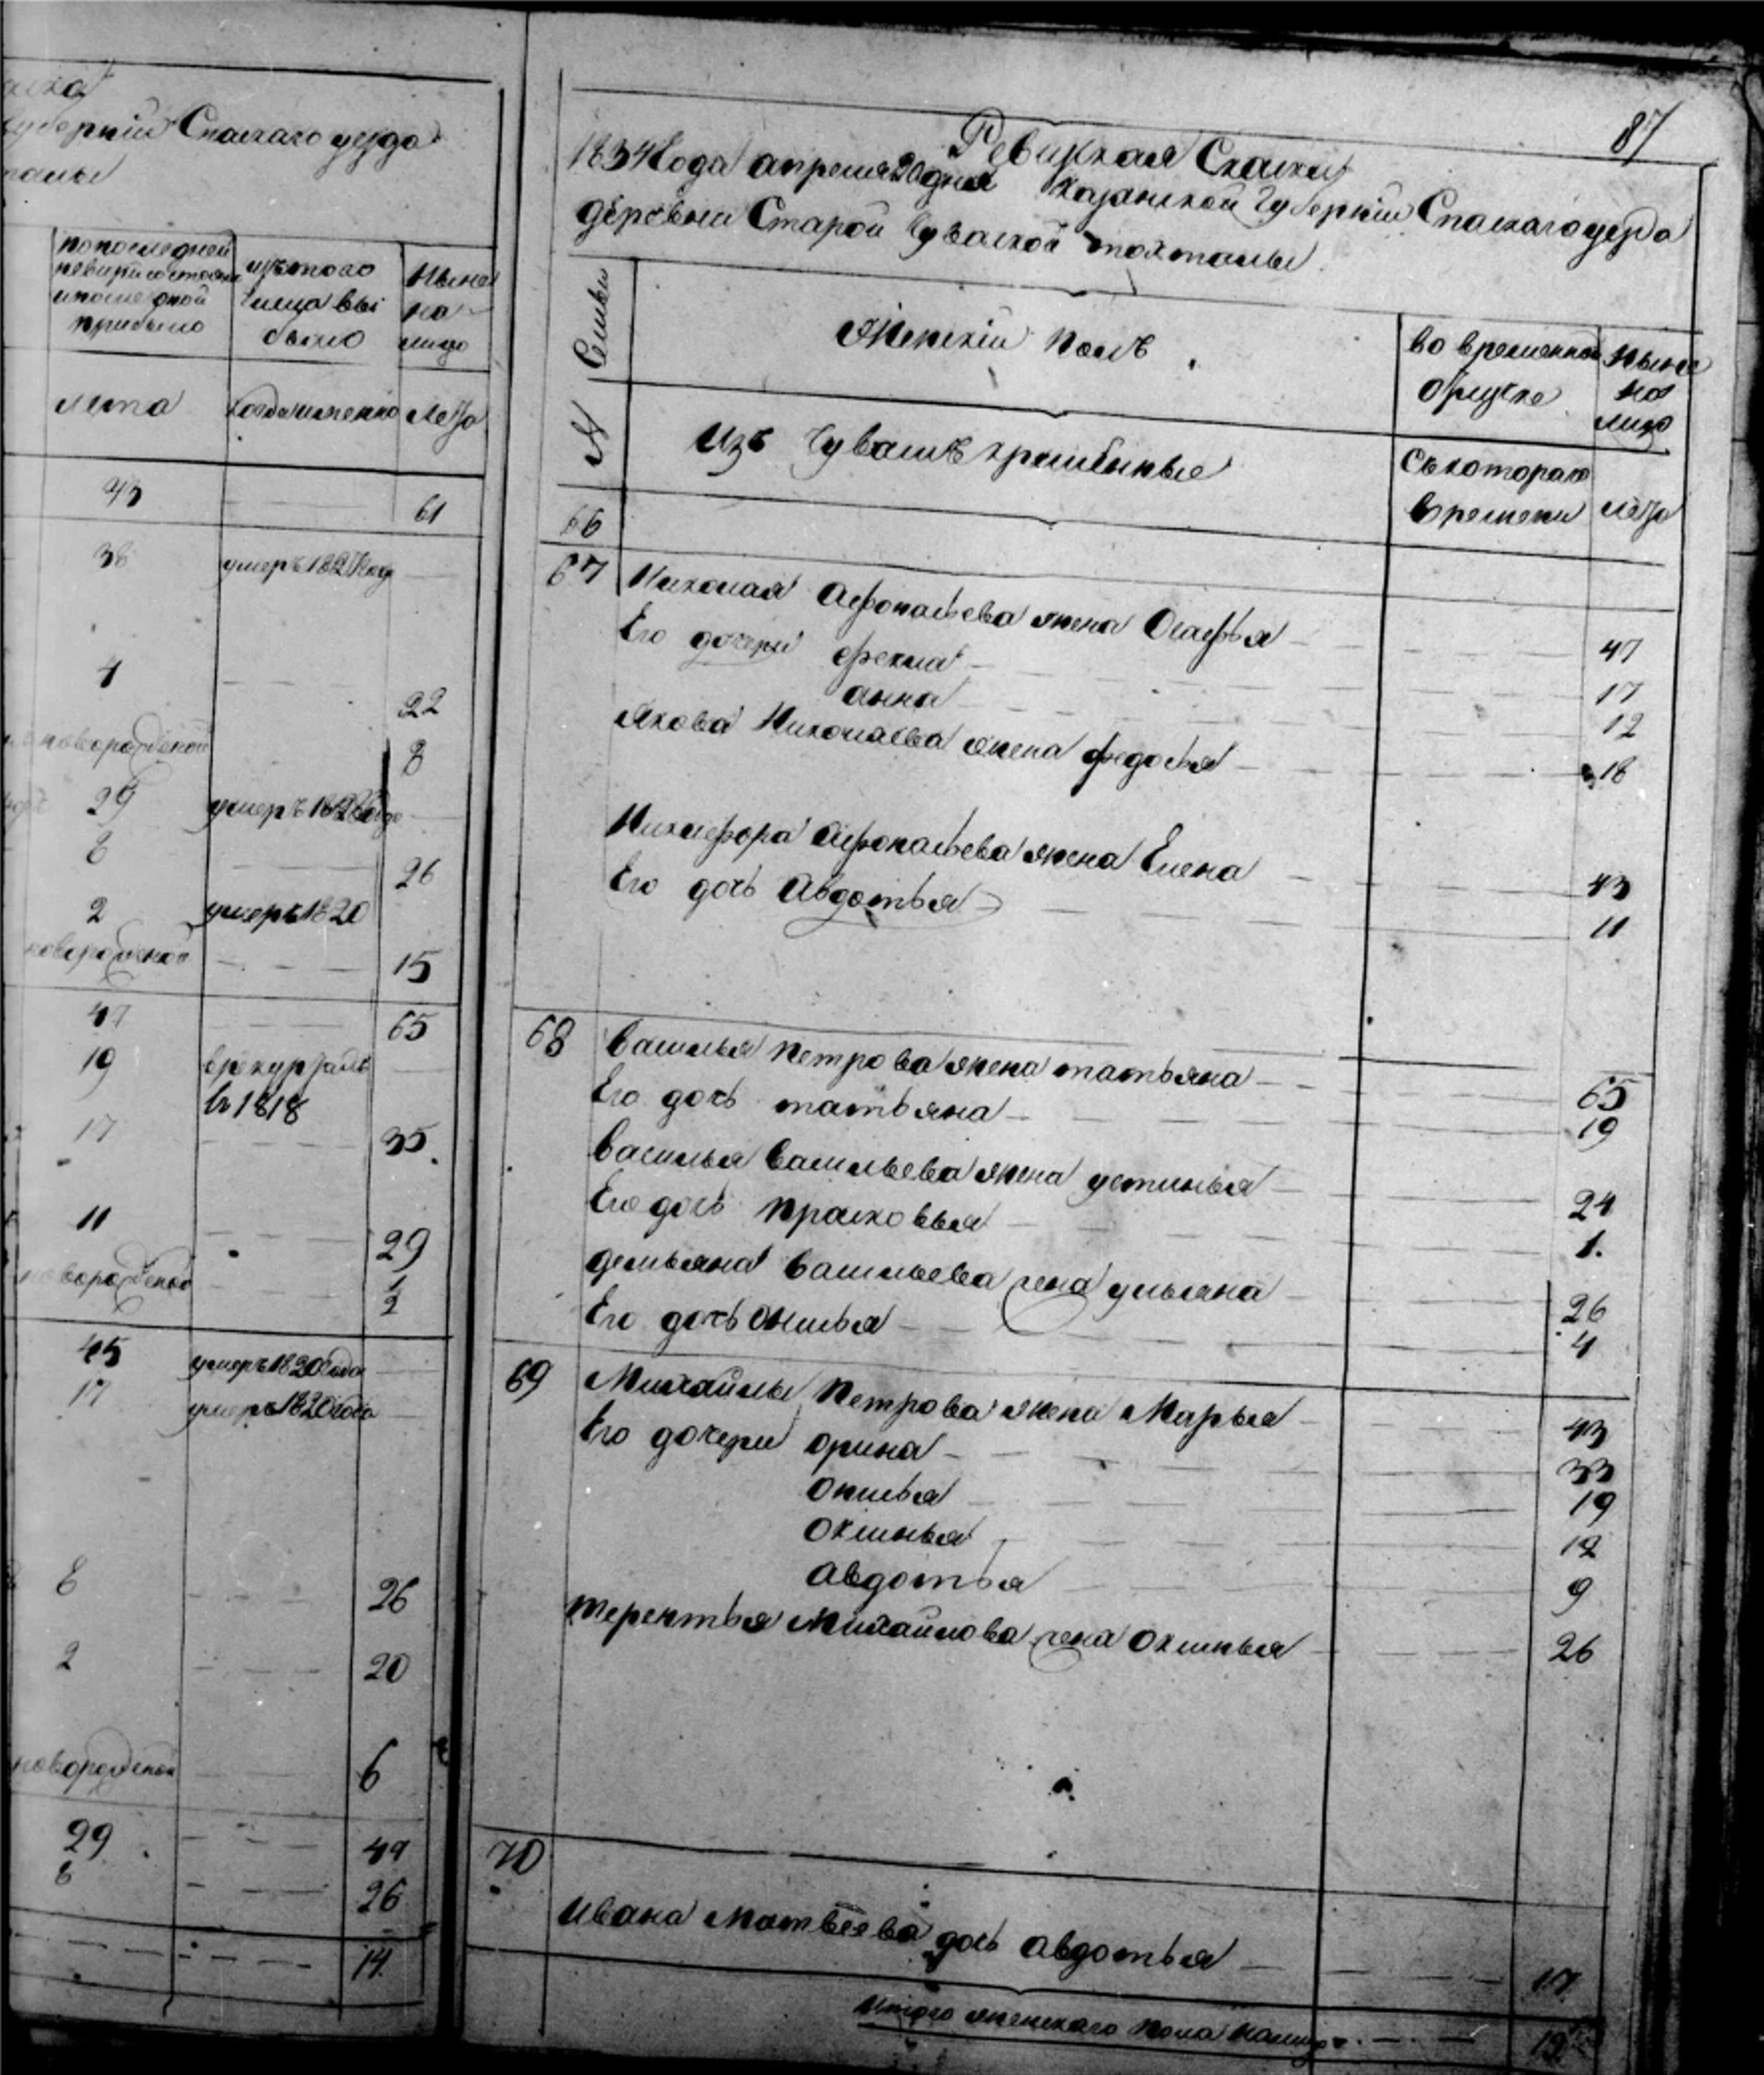 Губернiи Спаскаго уезда
по последней
ревизiи состояло
и после оной
прибыло
изъ того
числа вы
было
Ныне
на
лицо
лета
когда именно
лета
43 61
36 умеръ 1827 года
4 22
новорожденой 8
29 умеръ 1828 года
8 26
2 умеръ 1820
новорожденой 15
47 65
19 в рекруты
въ 1818
17 35
11 29
новорожденой 1/2
45 умеръ 1820 года
17 умеръ 1820 года
8 26
2 20
новорожденой 6
29 49
8 26
14
87
Ревизская Сказка
1834 года апреля 20 дня Казанской Губернiи Спаскаго уезда
деревни Старой Чуваской
№ Семьи
Женскiй полъ
во временной
отлучке
Ныне
на
лицо
Изъ Чувашъ крещеные
съ котораго
времени
лета
66
67 Николая Афонасьева жена Огафья 47
Его дочери Фекла 17
анна 12
Якова Николаева жена федосья 18
Никифора Афонасьева жена Елена 43
Его дочь Авдотья 11
68 Василья Петрова жена татьяна 65
Его дочь татьяна 19
Василья Васильева жена устинья 24
Его дочь Прасковья 1.
демьяна Васильева жена ульяна 26
Его дочь Онисья 4
69 Михайлы Петрова жена Марья 43
Его дочери орина 33
Онисья 19
Оксинья 12
Авдотья 9
терентья Михайлова жена Оксинья 26
70
Ивана Матвеева дочь авдотья 17
Итого женскаго пола налицо 19